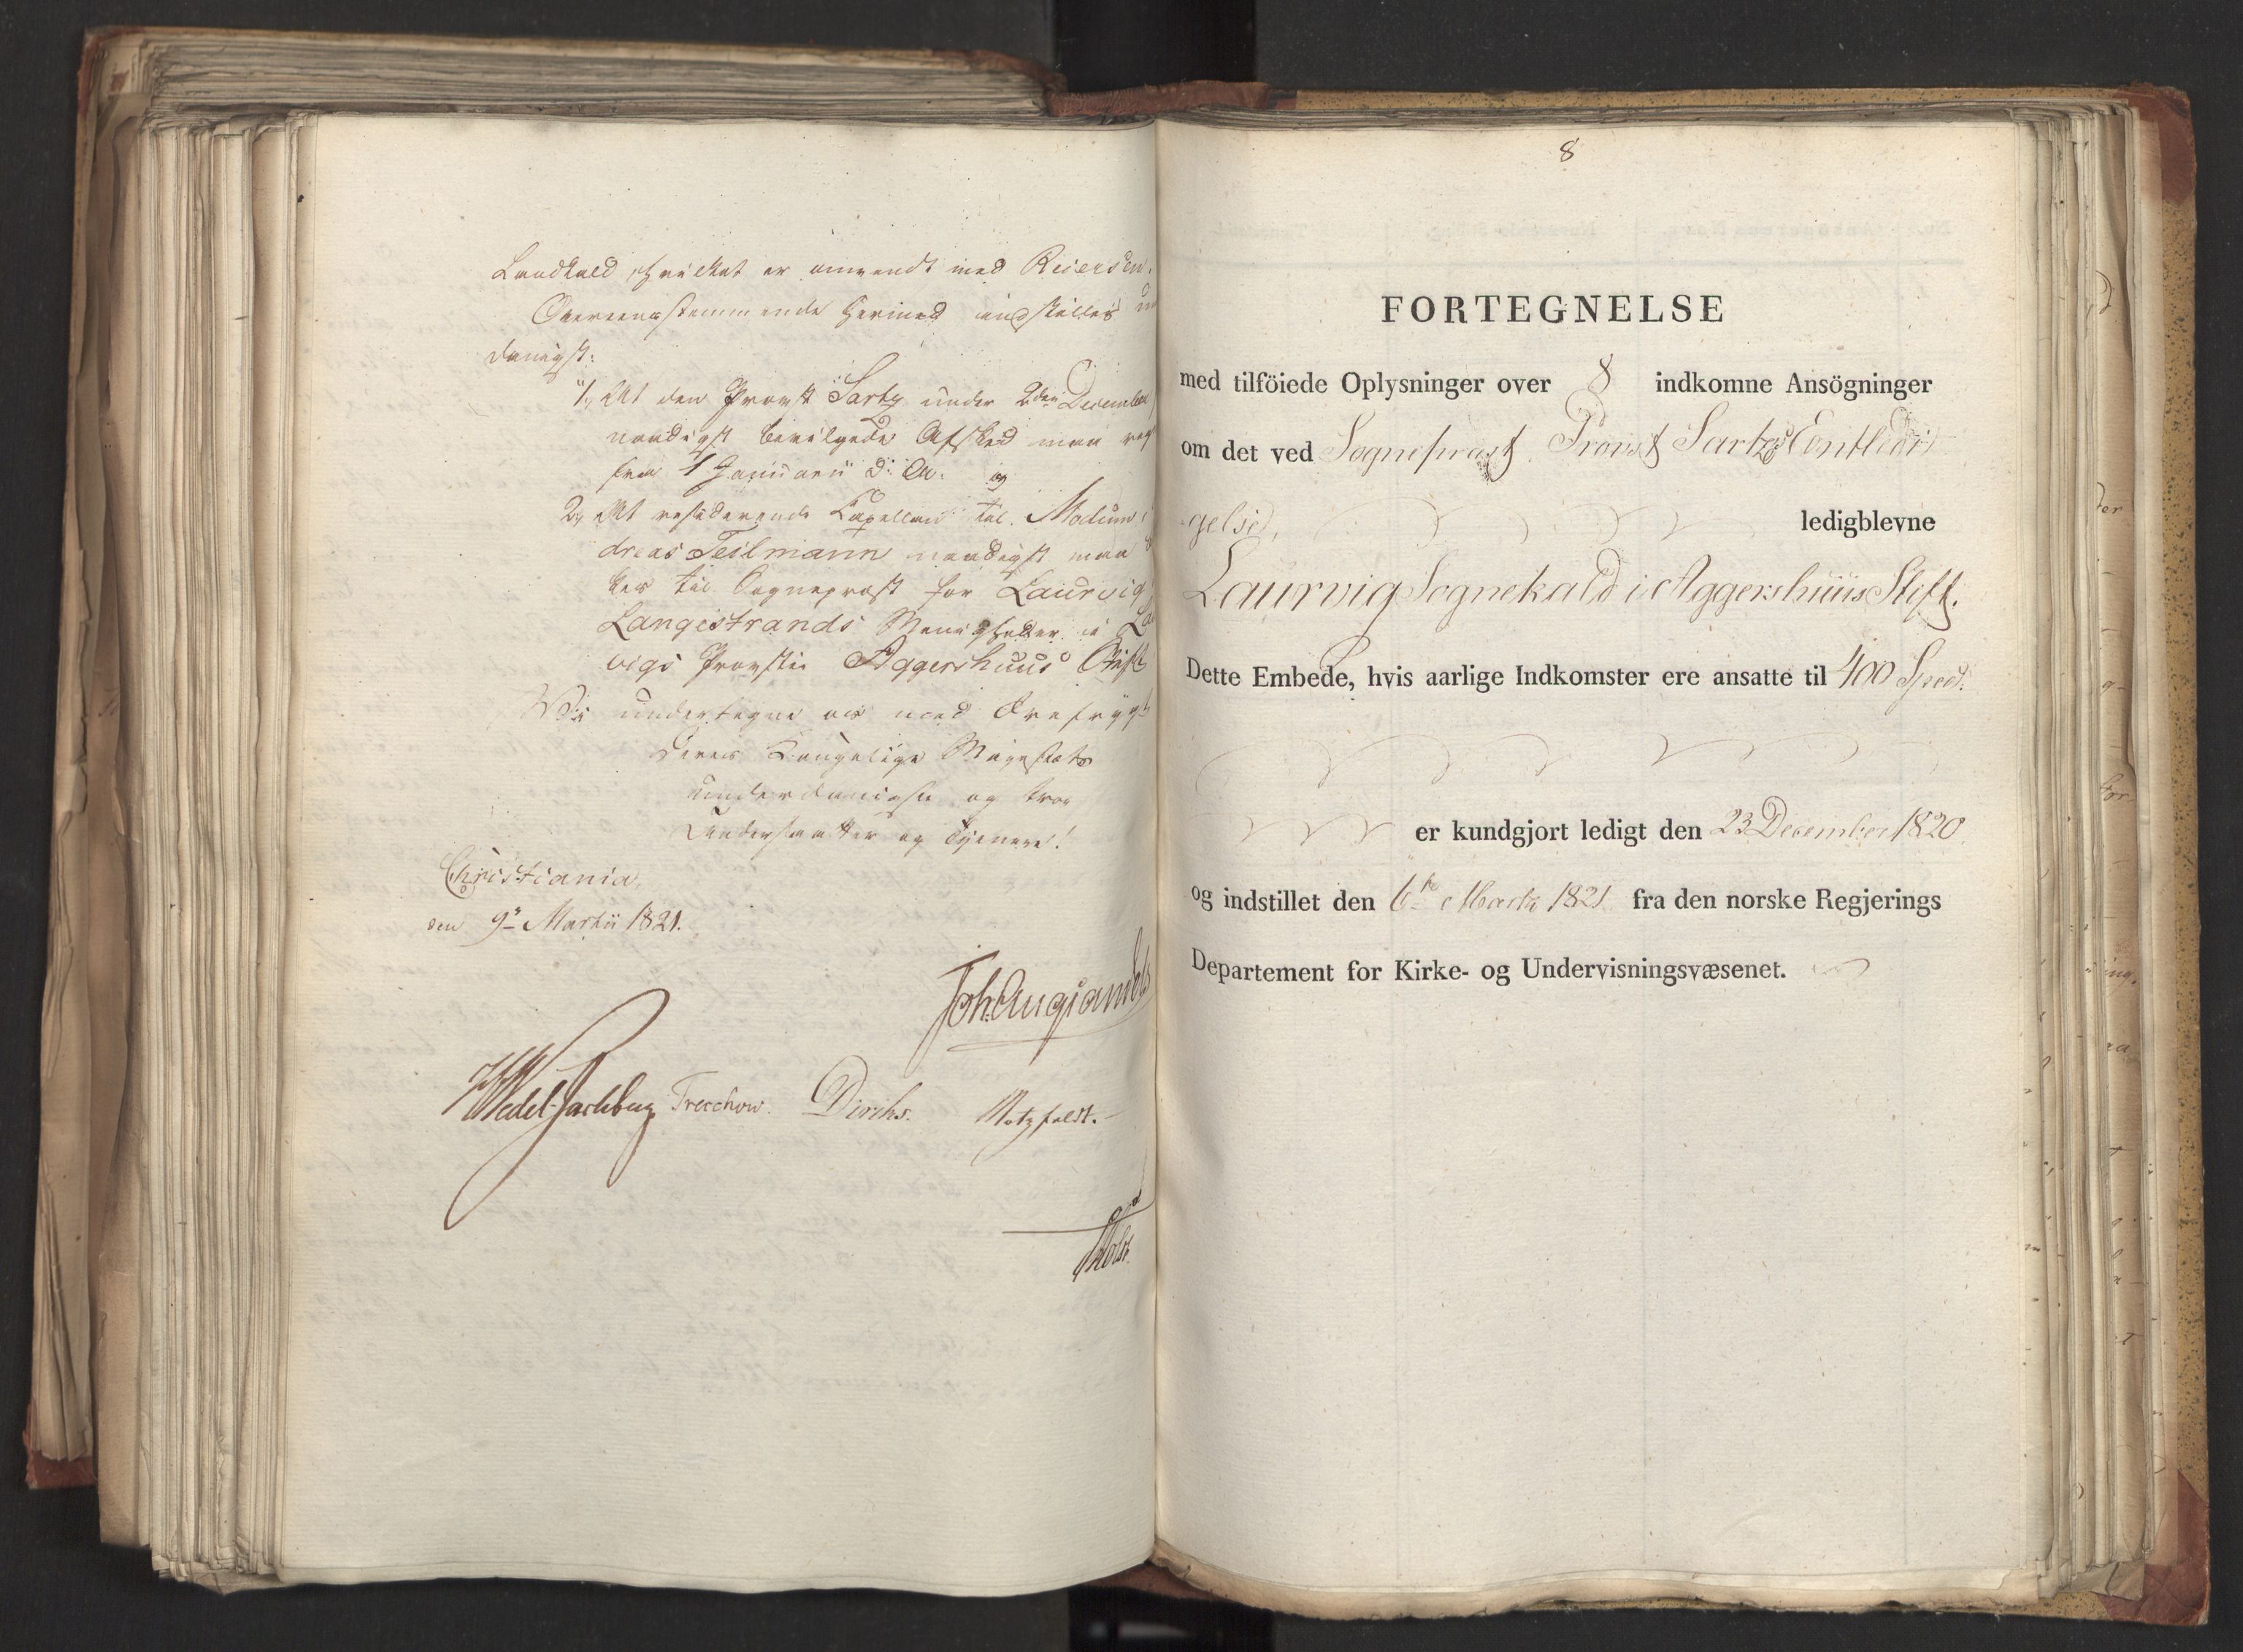 Landkald, hvilket er anvendt med Reiersen.
Overeensstemmende hermed indstilles un
danigst:
1, At den Provst Sartz under 2den December
naadigst bevilgede Afsked maa reg
fra 1 Januarii d: A: og
2, At residerende Capellan til Modum
dreas Teilmann naadigst maa
kes til Sognepræst for Laurvig
Langestrands Menigheder i La
vigs Provstie Aggershuus Stift
Vi undertegne os med Ærefrygt
Deres Kongelige Majestæts
underdanigste og troe
Undersaatter og Tjenere!
Christiania,
den 9de Martii 1821.
Joh. Aug. Sandels
HWedel-Jarlsberg Treschow. Diriks. Motzfeldt.
Holst.
8
FORTEGNELSE
med tilföiede Oplysninger over 8 indkomne Ansögninger
om det ved Sognepræst Provst Sartzes Entledi
gelse, ledigblevne
Laurvig Sognekald i Aggershuus Stift.
Dette Embede, hvis aarlige Indkomster ere ansatte til 400 Specd.
er kundgjort ledigt den 23 December 1820.
og indstillet den 6te Marts 1821 fra den norske Regjerings
Departement for Kirke- og Undervisningsvæsenet.